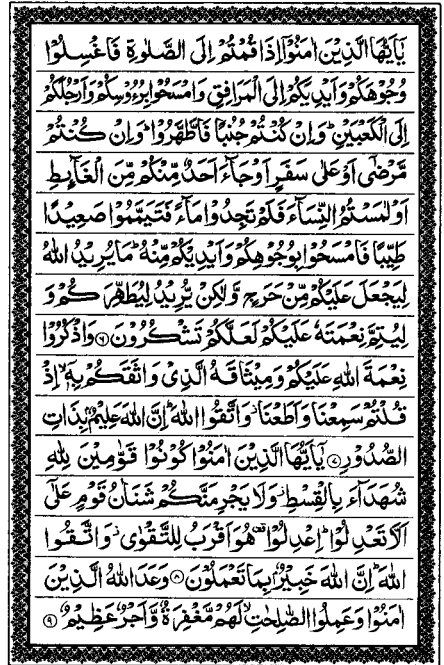 يٰۤاَيُّهَا الَّذِيْنَ اٰمَنُوْۤا اِذَا قُمْتُمْ اِلَى الصَّلٰوةِ فَاغْسِلُوْا
وُجُوْهَكُمْ وَاَيْدِيَكُمْ اِلَى الْمَرَافِقِ وَامْسَحُوْا بِرُءُوْسِكُمْ وَاَرْجُلَكُمْ
اِلَى الْكَعْبَيْنِ ؕ وَاِنْ كُنْتُمْ جُنُبًا فَاطَّهَّرُوْا ؕ وَاِنْ كُنْتُمْ
مَّرْضٰۤى اَوْ عَلٰى سَفَرٍ اَوْ جَآءَ اَحَدٌ مِّنْكُمْ مِّنَ الْغَآئِطِ
اَوْ لٰمَسْتُمُ النِّسَآءَ فَلَمْ تَجِدُوْا مَآءً فَتَيَمَّمُوْا صَعِيْدًا
طَيِّبًا فَامْسَحُوْا بِوُجُوْهِكُمْ وَاَيْدِيْكُمْ مِّنْهُ ؕ مَا يُرِيْدُ اللّٰهُ
لِيَجْعَلَ عَلَيْكُمْ مِّنْ حَرَجٍ وَّلٰكِنْ يُّرِيْدُ لِيُطَهِّرَكُمْ وَ
لِيُتِمَّ نِعْمَتَهٗ عَلَيْكُمْ لَعَلَّكُمْ تَشْكُرُوْنَ ۶ وَاذْكُرُوْا
نِعْمَةَ اللّٰهِ عَلَيْكُمْ وَمِيْثَاقَهُ الَّذِيْ وَاثَقَكُمْ بِهٖۤ ۙ اِذْ
قُلْتُمْ سَمِعْنَا وَاَطَعْنَا ؗ وَاتَّقُوا اللّٰهَ ؕ اِنَّ اللّٰهَ عَلِيْمٌۢ بِذَاتِ
الصُّدُوْرِ ۷ يٰۤاَيُّهَا الَّذِيْنَ اٰمَنُوْا كُوْنُوْا قَوّٰمِيْنَ لِلّٰهِ
شُهَدَآءَ بِالْقِسْطِ ؗ وَلَا يَجْرِمَنَّكُمْ شَنَاٰنُ قَوْمٍ عَلٰۤى
اَلَّا تَعْدِلُوْا ؕ اِعْدِلُوْا ۫ هُوَ اَقْرَبُ لِلتَّقْوٰى ؗ وَاتَّقُوا
اللّٰهَ ؕ اِنَّ اللّٰهَ خَبِيْرٌۢ بِمَا تَعْمَلُوْنَ ۸ وَعَدَ اللّٰهُ الَّذِيْنَ
اٰمَنُوْا وَعَمِلُوا الصّٰلِحٰتِ ۙ لَهُمْ مَّغْفِرَةٌ وَّاَجْرٌ عَظِيْمٌ ۹